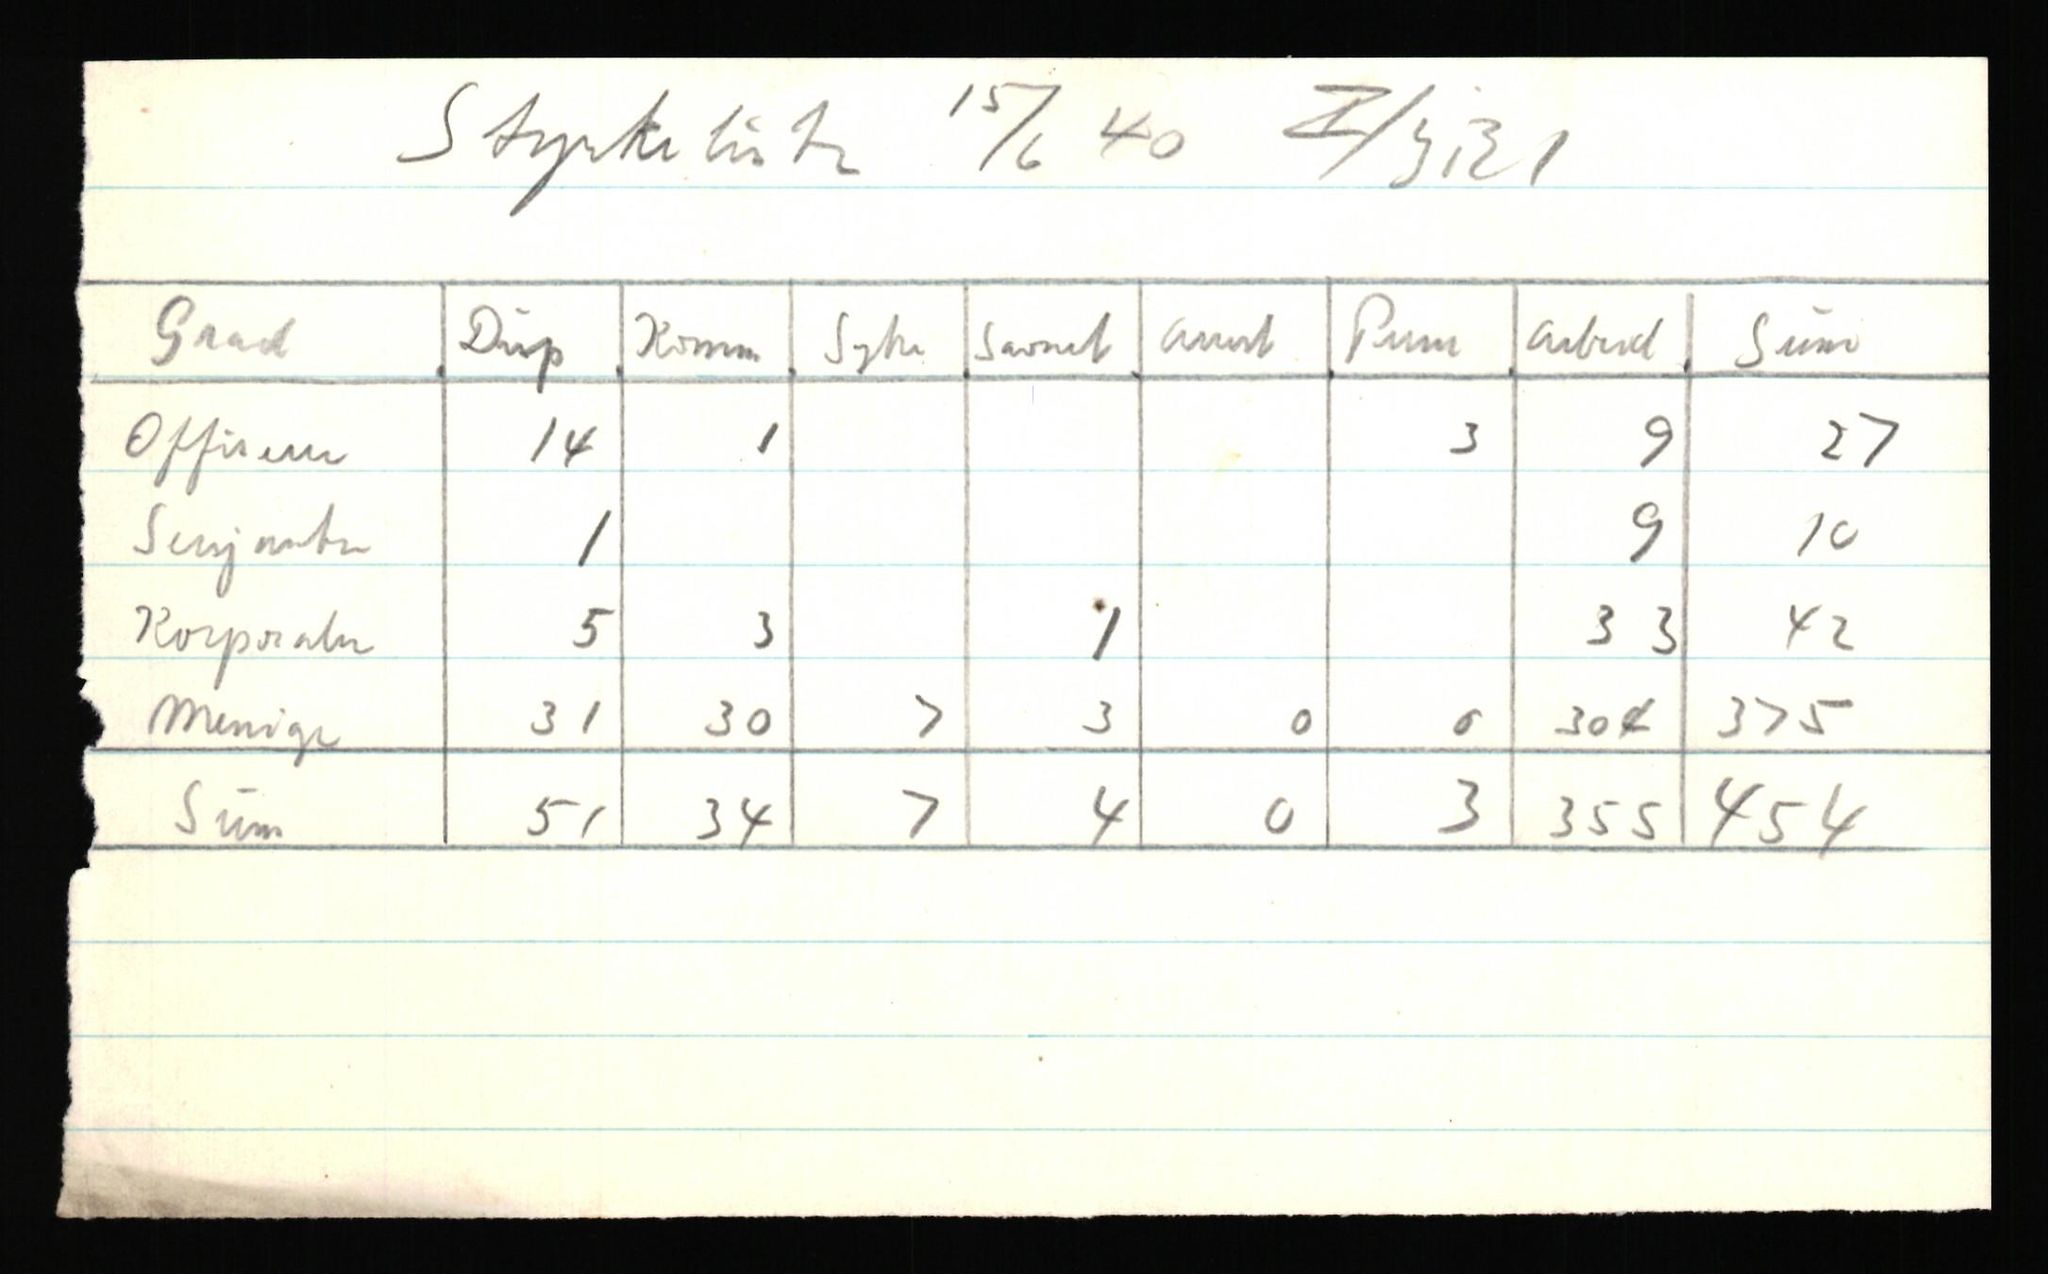 Styrkeliste 15/6 40 I/JR1
Grad Disp Komm Syke Savnet Arrest Perm Arbeid Sum
Offiserer 14 1 3 9 27
Sersjanter 1 9 10
Korporaler 5 3 1 33 42
Menige 31 30 7 3 0 0 304 375
Sum 51 34 7 4 0 3 355 454